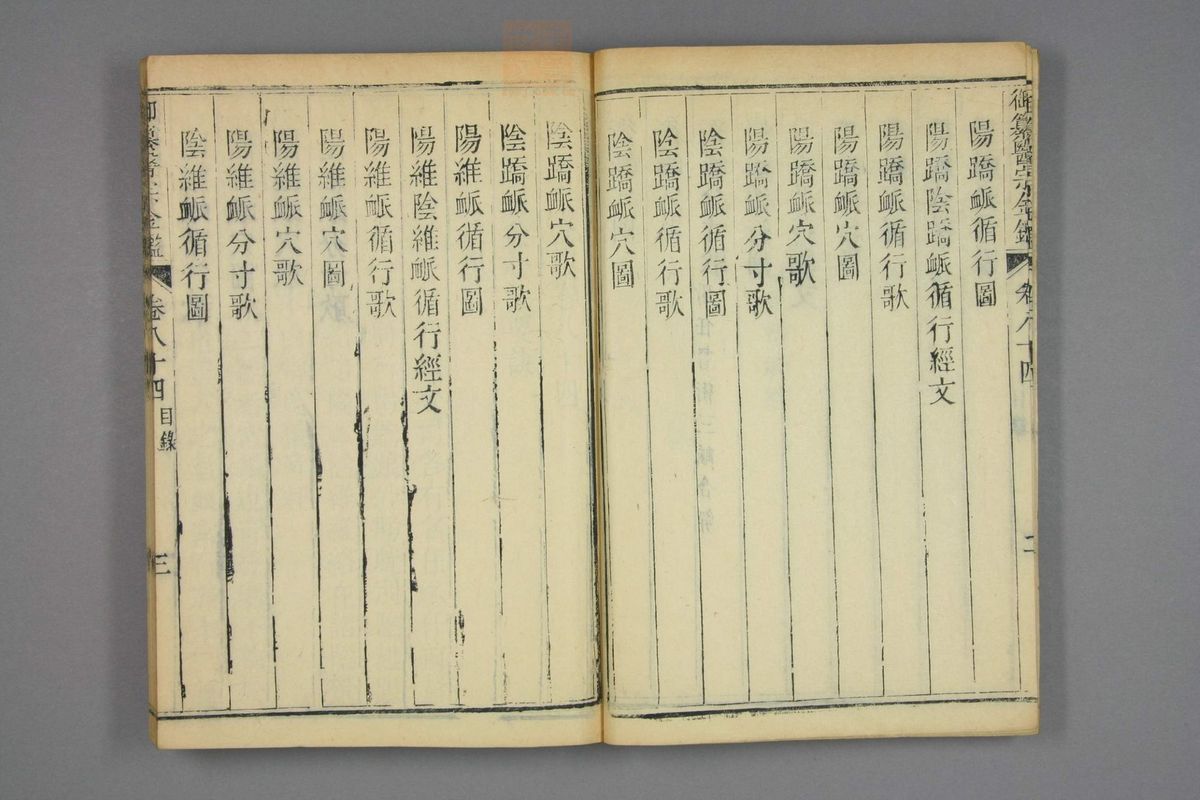 御纂醫宗金鑑
卷八十四
二
陽蹻衇循行圖
陽蹻陰蹻衇循行經文
陽蹻衇循行歌
陽蹻衇穴圖
陽蹻衇穴歌
陽蹻衇分寸歌
陰蹻衇循行圖
陰蹻衇循行歌
陰蹻衇穴圖
陰蹻衇穴歌
陰蹻衇分寸歌
陽維衇循行圖
陽維陰維衇循行經文
陽維衇循行歌
陽維衇穴圖
陽維衇穴歌
陽維衇分寸歌
陰維衇循行圖
御纂醫宗金鑑
卷八十四 目錄
三